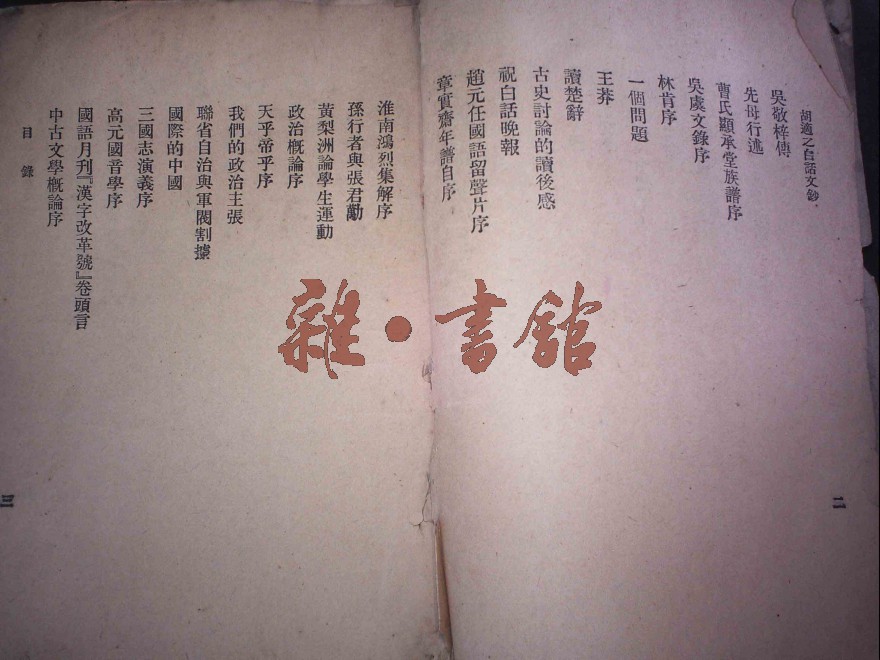 胡適之白話文鈔
吳敬梓傳
先母行述
曹氏顯承堂族譜序
吳虞文錄序
林肯序
一個問題
王莽
讀楚辭
古史討論的讀後感
祝白話晚報
趙元任國語留聲片序
章實齋年譜自序
二
淮南鴻烈集解序
孫行者與張君勱
黃梨洲論學生運動
政治概論序
天乎帝乎序
我們的政治主張
聯省自治與軍閥割據
國際的中國
三國志演義序
高元國音學序
國語月刊『漢字改革號』卷頭言
中古文學概論序
目錄
三
雜・書館